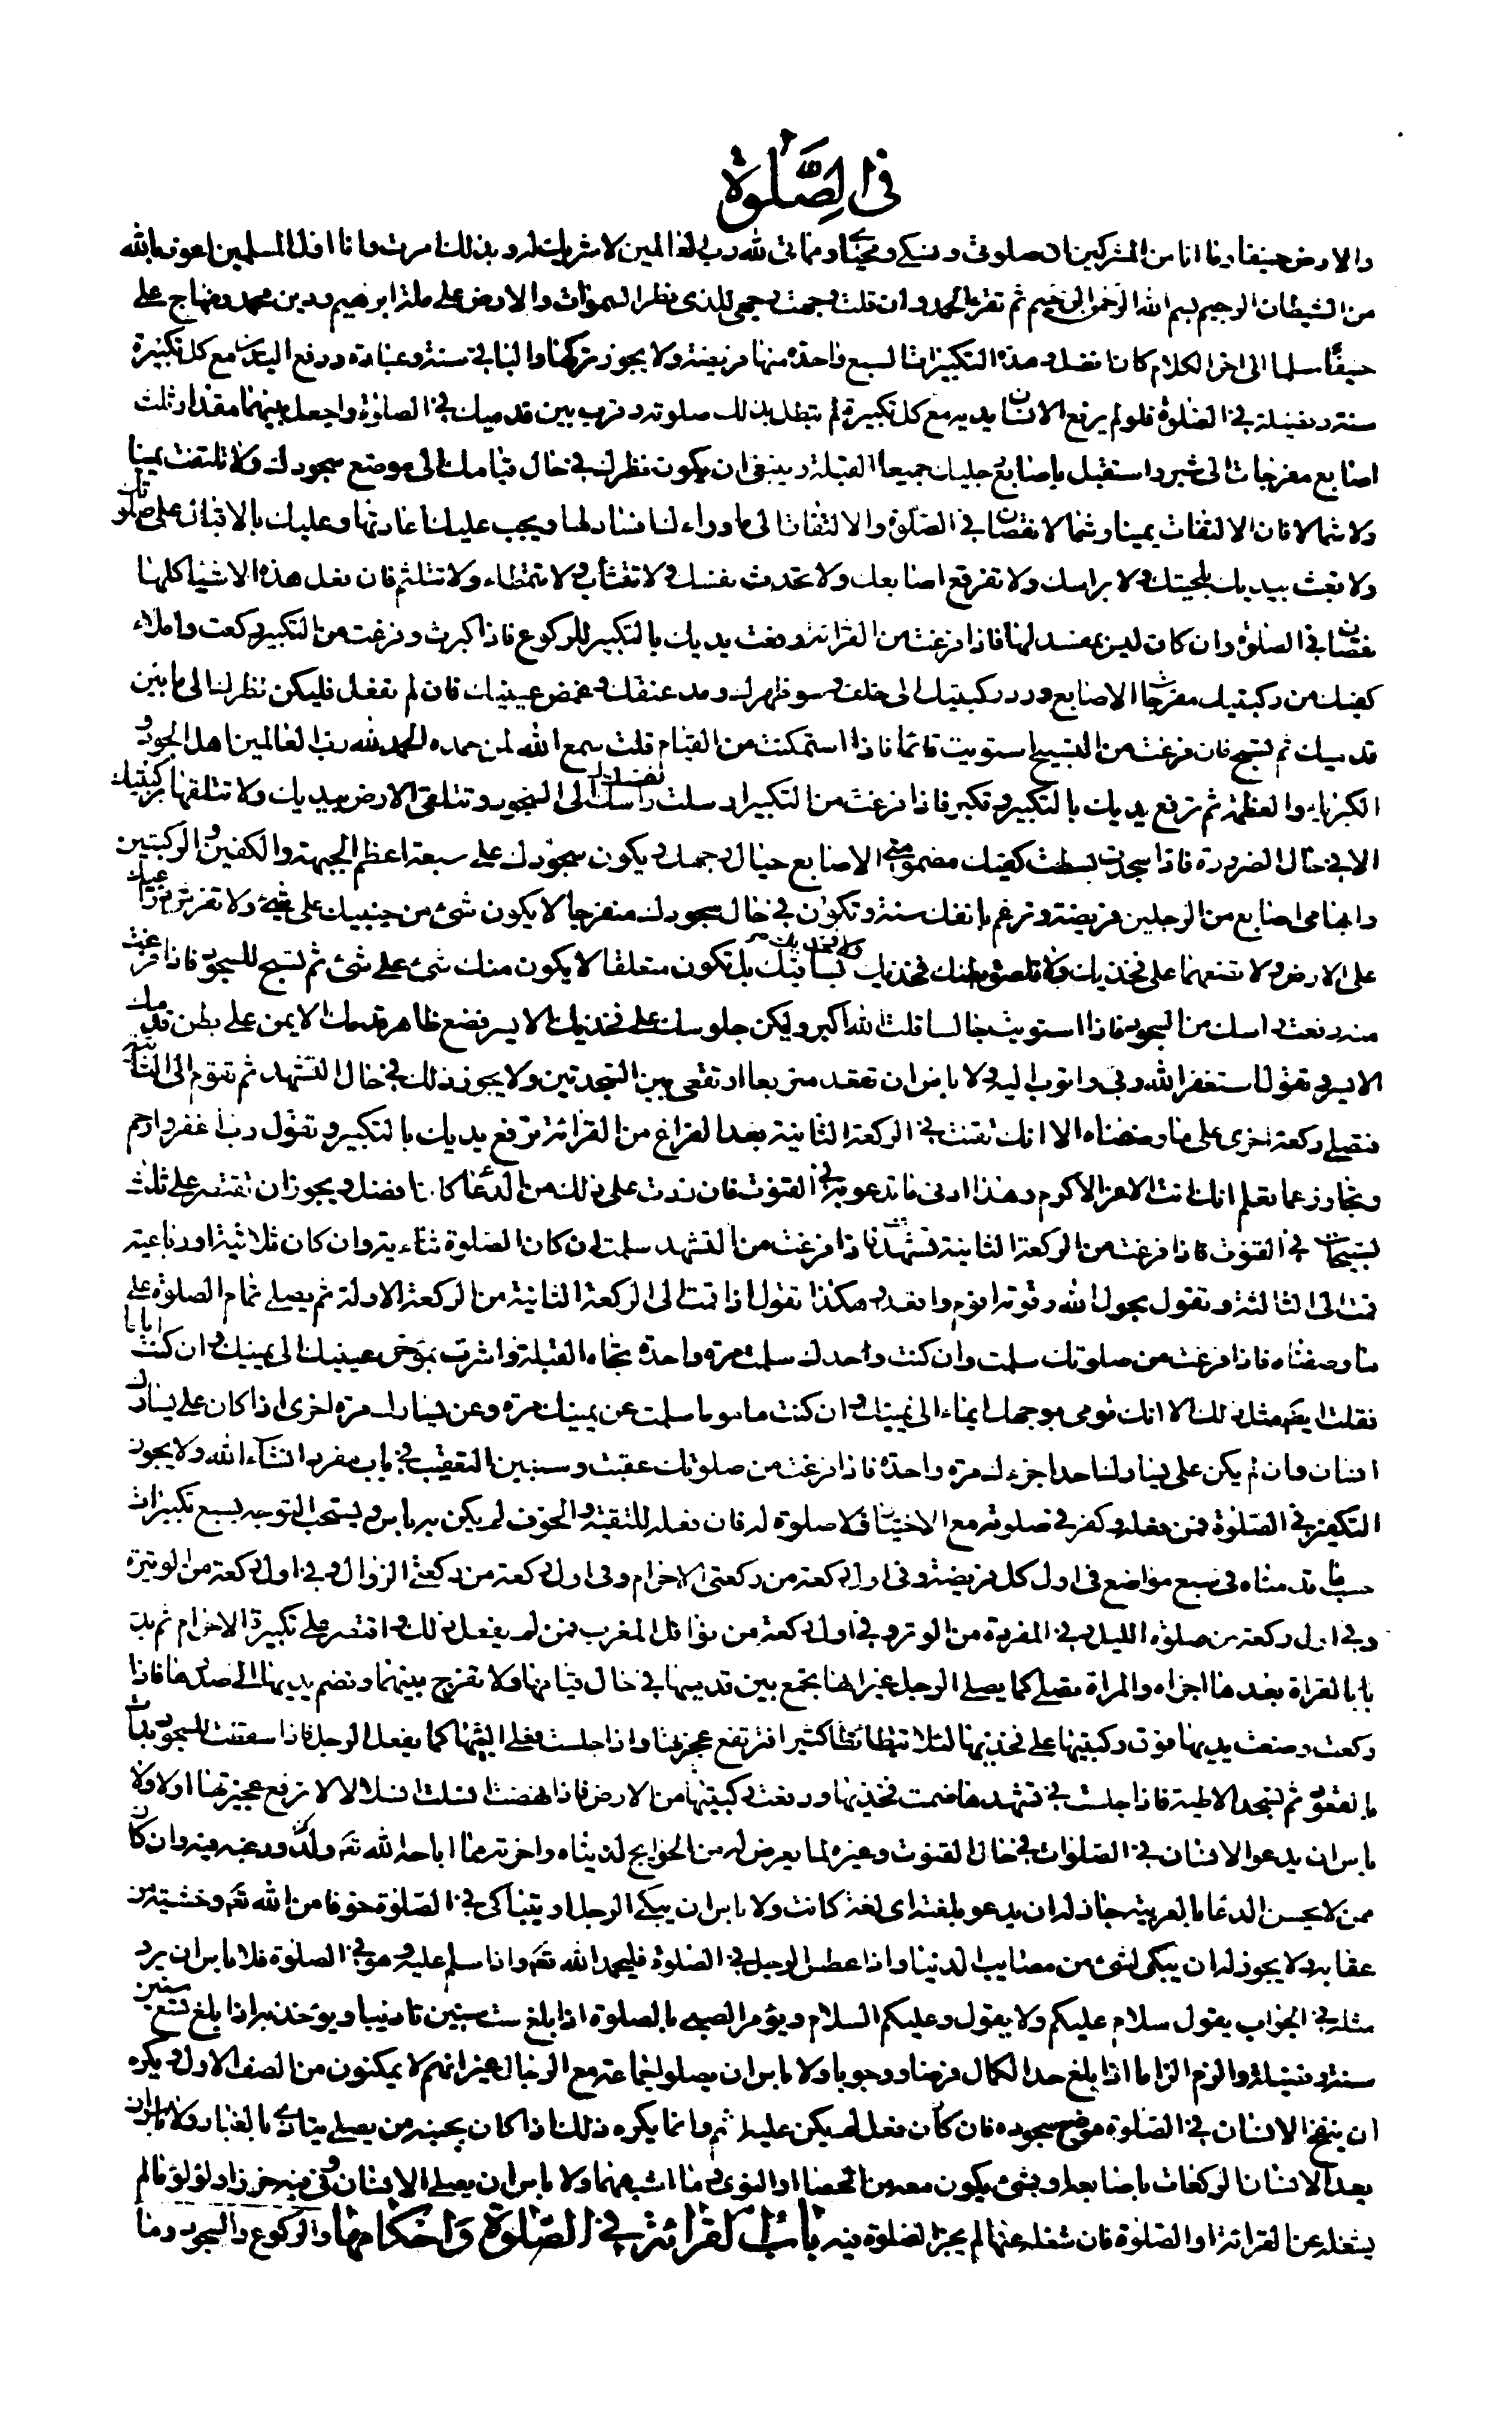 في الصلوة
والارض حنيفا وما انا من المشركين ان صلوتي ونسكي ومحياي ومماتي لله رب العالمين لا شريك له وبذلك امرت وانا اول المسلمين اعوذ بالله
من الشيطان الرجيم بسم الله الرحمن الرحيم ثم تقرء الحمد وان قلت وجهت وجهي للذي فطر السموات والارض على ملة ابرهيم ودين محمد ومنهاج علي
حنيفا مسلما الى اخر الكلام كان افضل وهذه التكبيرات السبع واحدة منها فريضة ولا يجوز تركها والباقي سنة وعبادة ورفع اليدين مع كل تكبيرة
سنة وفضيلة في الصلوة فلو لم يرفع الانسان يديه مع كل تكبيرة لم تبطل بذلك صلوته وقرب بين قدميك في الصلوة واجعل بينهما مقدار ثلث
اصابع مفرجات الى شبر واستقبل باصابع رجليك جميعا القبلة وينبغي ان يكون نظرك في حال قيامك الى موضع سجودك ولا تلتفت يمينا
ولا شمالا فان الالتفات يمينا وشمالا نقصان في الصلوة والالتفات الى ما وراءك افساد لها ويجب عليك اعادتها وعليك بالاقبال على صلوتك
ولا تعبث بيديك بلحيتك ولا براسك ولا تفرقع اصابعك ولا تحدث نفسك ولا تتثأب ولا تتمطاء ولا تتلثم فان فعل هذه الاشياء كلها
نقصان في الصلوة وان كان ليس بمفسد لها فاذا فرغت من القرائة رفعت يديك بالتكبير للركوع فاذا كبرت وفرغت من التكبير ركعت واملاء
كفيك من ركبتيك مفرجات الاصابع ورد ركبتيك الى خلف وسو ظهرك ومد عنقك وغمض عينيك فان لم تفعل فليكن نظرك الى ما بين
قدميك ثم تسبح فان فرغت من التسبيح استويت قائما فاذا استمكنت من القيام قلت سمع الله لمن حمده الحمد لله رب العالمين اهل الجود و
الكبرياء والعظمة ثم ترفع يديك بالتكبير وتكبر فاذا فرغت من التكبير ارسلت راسك الى السجود وتتلقى الارض بيديك ولا تتلقها بركبتيك
الا في حال الضرورة فاذا سجدت بسطت كفيك مضمومتي الاصابع حيال وجهك ويكون سجودك على سبعة اعظم الجبهة والكفين والركبتين
وابهامى اصابع من الرجلين فريضة وترغم بانفك سنة وتكون في حال سجودك منفرجا لا يكون شئ من جنبيك على شئ ولا تفرش ذراعيك
على الارض ولا تضعهما على فخذيك ولا تلصق بطنك فخذيك ولا فخذيك بساقيك بل تكون متعلقا لا يكون منك شئ على شئ ثم تسبح للسجود فاذا فرغت
منه رفعت راسك من السجود فاذا استويت جالسا قلت الله اكبر وليكن جلوسك على فخذيك الايسر فضع ظاهر قدمك الايمن على بطن قدمك
الايسر وتقول استغفر الله ربي واتوب اليه ولا باس ان تقعد متربعا او تقعى بين السجدتين ولا يجوز ذلك في حال التشهد ثم تقوم الى الثانية
فتصلي ركعة اخرى على ما وصفناه الا انك تقنت في الركعة الثانية بعد الفراغ من القرائة ترفع يديك بالتكبير وتقول رب اغفر وارحم
وتجاوز عما تعلم انك انت الاعز الاكرم وهذا ادنى ما تدعو به في القنوت فان زدت على ذلك من الدعا كان افضل ويجوز ان تقتصر على ثلث
تسبيحات في القنوت فاذا فرغت من الركعة الثانية تشهدت فاذا فرغت من التشهد سلمت ان كان الصلوة ثنائية وان كان ثلاثية او رباعية
قمت الى الثالثة وتقول بحول الله وقوته اقوم واقعد وهكذا تقول اذا قمت الى الركعة الثانية من الركعة الاولة ثم يصلي تمام الصلوة على
ما وصفناه فاذا فرغت من صلوتك سلمت وان كنت واحدك سلمت مرة واحدة تجاه القبلة واشرت بمؤخر عينيك الى يمينك وان كنت اماما
فعلت ايضا مثل ذلك الا انك تومى بوجهك ايماء الى يمينك وان كنت ماموما سلمت عن يمينك مرة وعن يسارك مرة اخرى اذا كان على يسارك
انسان وان لم يكن على يسارك احد اجزءك مرة واحدة فاذا فرغت من صلوتك عقبت وسنبين التعقيب في باب مفرد انشاء الله ولا يجوز
التكفير في الصلوة فمن فعله وكفر في صلوته مع الاختيار فلا صلوة له فان فعله للتقية والخوف لم يكن به باس ويستحب التوجه بسبع تكبيرات
حسب ما قدمناه في سبع مواضع في اول كل فريضة وفي اول ركعة من ركعتي الاحرام وفي اول ركعة من ركعتي الزوال وفي اول ركعة من الوتيرة
وفي اول ركعة من صلوة الليل وفي المفردة من الوتر وفي اول ركعة من نوافل المغرب فمن لم يفعل ذلك واقتصر على تكبيرة الاحرام ثم بدء
بالقراءة بعدها اجزاه والمراة تصلي كما يصلي الرجل غير انها تجمع بين قدميها في حال قيامها ولا تفرج بينهما وتضم يديها الى صدرها فاذا
ركعت وضعت يديها فوق ركبتيها على فخذيها لئلا تتطأطأ كثيرا فترتفع عجيزتها واذا جلست فعلى اليتيها كما يفعل الرجل فاذا سقطت للسجود بدات
بالقعود ثم تسجد لاطية فاذا جلست في تشهدها ضمت فخذيها ورفعت ركبتيها من الارض فاذا نهضت انسلت انسلالا لا ترفع عجيزتها اولا ولا
باس ان يدعو الانسان في الصلوات في حال القنوت وغيره لما يعرض له من الحوايج لدنياه واخرته مما اباحه الله تعالى ورغبه فيه وان كان
ممن لا يحسن الدعا بالعربية جاز له ان يدعو بلغته اى لغة كانت ولا باس ان يبكي الرجل او يتباكى في الصلوة خوفا من الله تعالى وخشية من
عقابه ولا يجوز له ان يبكى لشئ من مصايب الدنيا واذا عطس الرجل في الصلوة فليحمد الله تعالى واذا سلم عليه وهو في الصلوة فلا باس ان يرد
مثله في الجواب يقول سلام عليكم ولا يقول وعليكم السلام ويؤمر الصبي بالصلوة اذا بلغ ست سنين تاديبا ويؤخذ به اذا بلغ تسع سنين
سنة وفضيلة والزم الزاما اذا بلغ حد الكمال فرضا ووجوبا ولا باس ان يصلوا جماعة مع الرجال غير انهم لا يمكنون من الصف الاول ويكره
ان ينفخ الانسان في الصلوة موضع سجوده فان كان فعل لم يكن عليه اثم وانما يكره ذلك اذا كان بجنبه من يصلي يتاذى بالغبار ولا باس ان
يعد الانسان الركعات باصابعه او بشئ يكون معه من الحصا او النوى وما اشبههما ولا باس ان يصلي الانسان وفي فيه خرز او لؤلؤ ما لم
يشغله عن القرائة او الصلوة فان شغله عنها لم يجز الصلوة فيه باب القرائة في الصلوة واحكامها والركوع والسجود وما